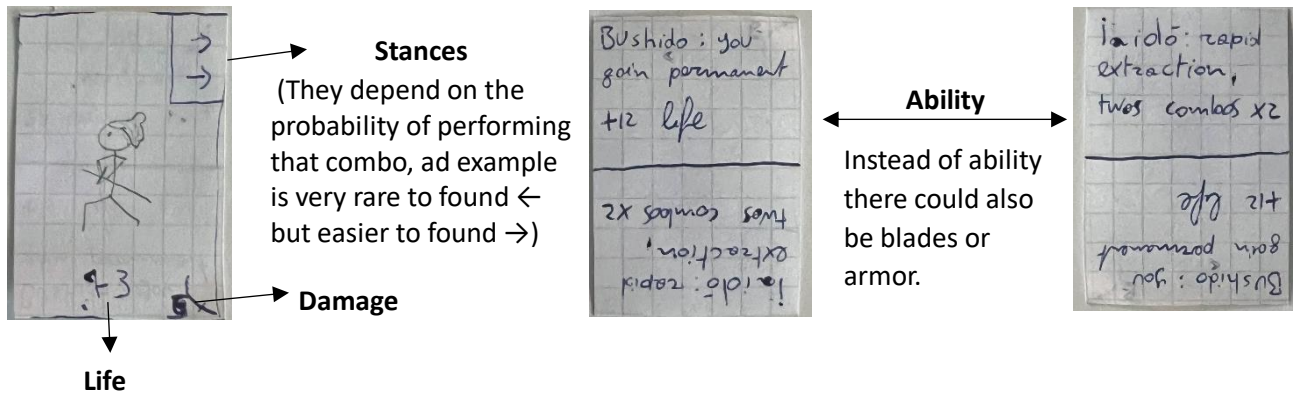 →
→
+3
Stances
(They depend on the
probability of performing
that combo, ad example
is very rare to found ←
but easier to found →)
Damage
Life
Bushido: you
gain permanent
+12 life
iaidō: rapid
extraction,
twos combos x2
Ability
Instead of ability
there could also
be blades or
armor.
iaidō: rapid
extraction,
twos combos x2
Bushido: you
gain permanent
+12 life